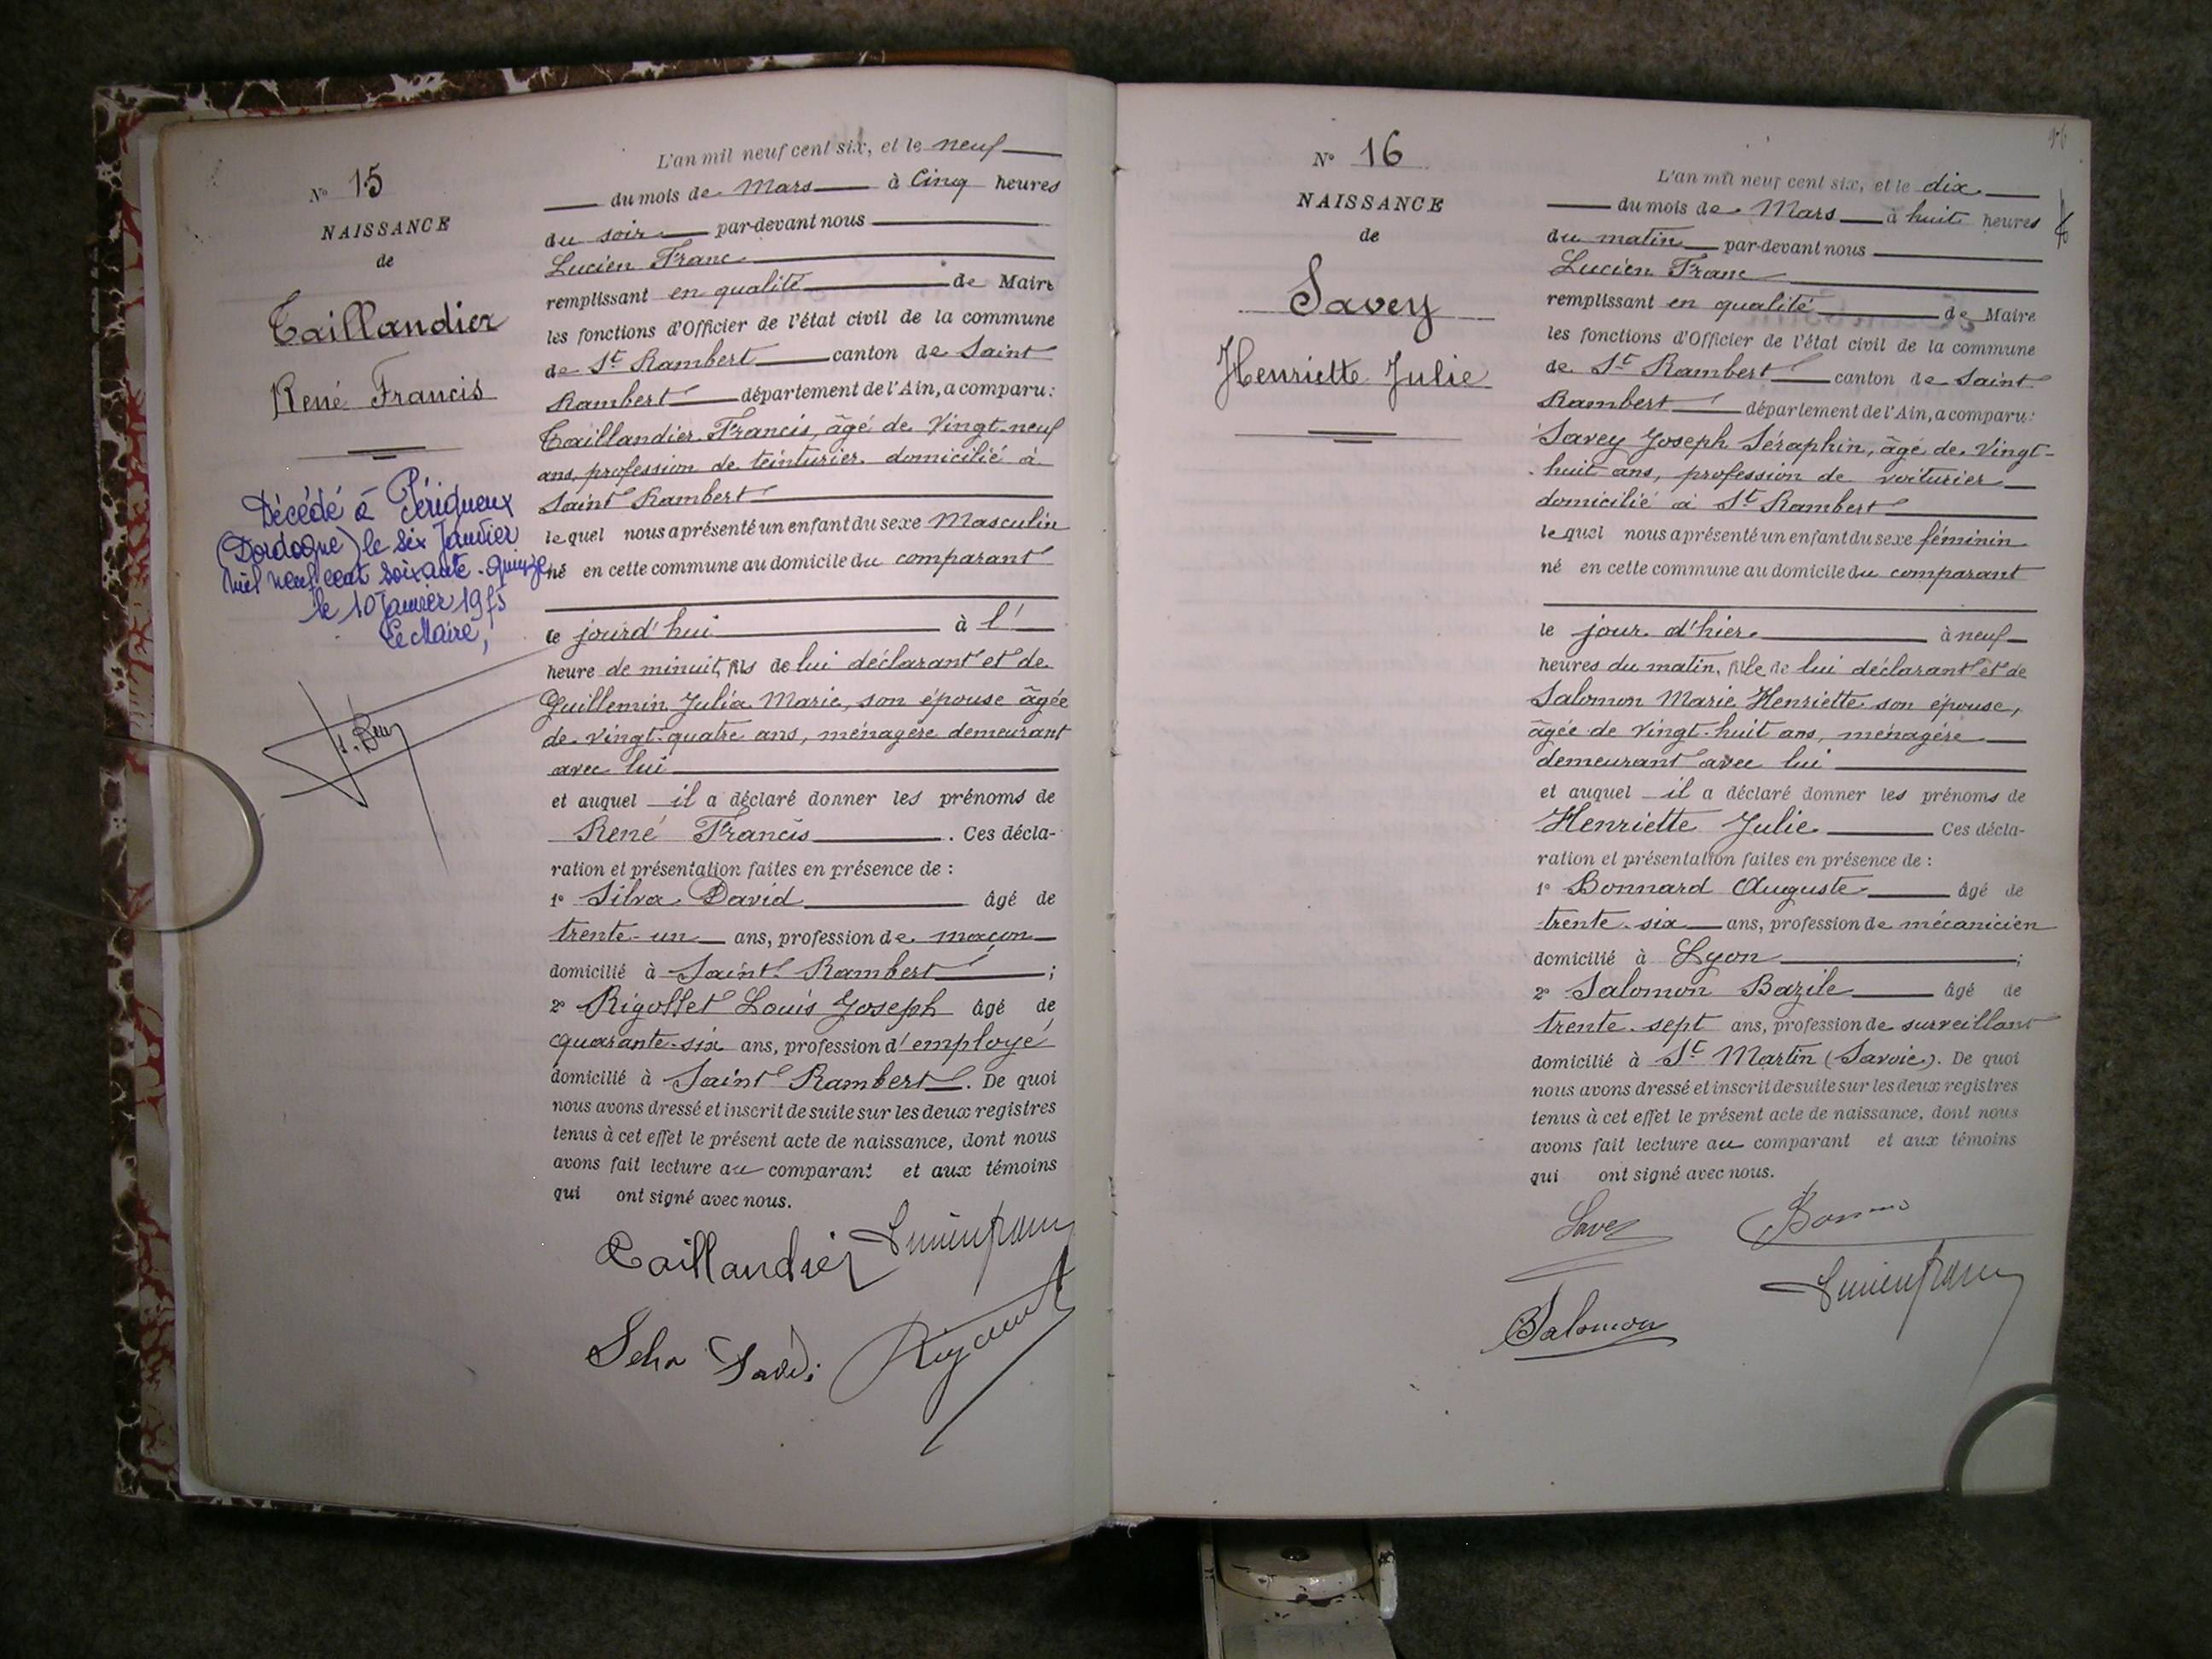 N° 15
NAISSANCE
de
Taillandier
René Francis
Décédé à Périgueux
(Dordogne) le six Janvier
mil neuf cent soixante-quinze
le 10 Janvier 1975
Le Maire,
L'an mil neuf cent six, et le neuf
du mois de Mars à Cinq heures
du soir par-devant nous
Lucien Franc
remplissant en qualité de Maire
les fonctions d'Officier de l'état civil de la commune
de St Rambert canton de Saint
Rambert département de l'Ain, a comparu:
Taillandier Francis, âgé de Vingt-neuf
ans, profession de teinturier domicilié à
Saint Rambert
lequel nous a présenté un enfant du sexe Masculin
né en cette commune au domicile du comparant
le jourd'hui à l'
heure de minuit, fils de lui déclarant et de
Guillemin Julia Marie, son épouse âgée
de vingt-quatre ans, ménagère demeurant
avec lui
et auquel il a déclaré donner les prénoms de
René Francis. Ces décla-
ration et présentation faites en présence de :
1° Silva David âgé de
trente-un ans, profession de maçon
domicilié à Saint Rambert ;
2° Rigollet Louis Joseph âgé de
quarante-six ans, profession d'employé
domicilié à Saint Rambert. De quoi
nous avons dressé et inscrit de suite sur les deux registres
tenus à cet effet le présent acte de naissance, dont nous
avons fait lecture au comparant et aux témoins
qui ont signé avec nous.
Taillandier Lucien Franc
N° 16
NAISSANCE
de
Savey
Henriette Julie
L'an mil neuf cent six, et le dix
du mois de Mars à huit heures
du matin par-devant nous
Lucien Franc
remplissant en qualité de Maire
les fonctions d'Officier de l'état civil de la commune
de St Rambert canton de Saint
Rambert département de l'Ain, a comparu:
Savey Joseph Séraphin, âgé de Vingt-
huit ans, profession de voiturier
domicilié à St Rambert
lequel nous a présenté un enfant du sexe féminin
né en cette commune au domicile du comparant
le jour d'hier à neuf
heures du matin, fille de lui déclarant et de
Salomon Marie Henriette son épouse,
âgée de vingt-huit ans, ménagère
demeurant avec lui
et auquel il a déclaré donner les prénoms de
Henriette Julie Ces décla-
ration et présentation faites en présence de :
1° Bonnard Auguste âgé de
trente-six ans, profession de mécanicien
domicilié à Lyon ;
2° Salomon Bazile âgé de
trente-sept ans, profession de surveillant
domicilié à St Martin (Savoie). De quoi
nous avons dressé et inscrit de suite sur les deux registres
tenus à cet effet le présent acte de naissance, dont nous
avons fait lecture au comparant et aux témoins
qui ont signé avec nous.
Savey
Lucien Franc
BSalomon